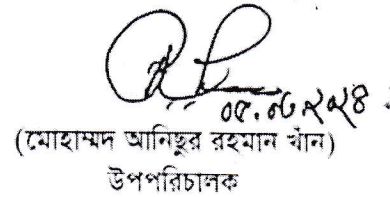 ০৫.০৬.২০২৪
(মোহাম্মদ আনিছুর রহমান খাঁন)
উপপরিচালক